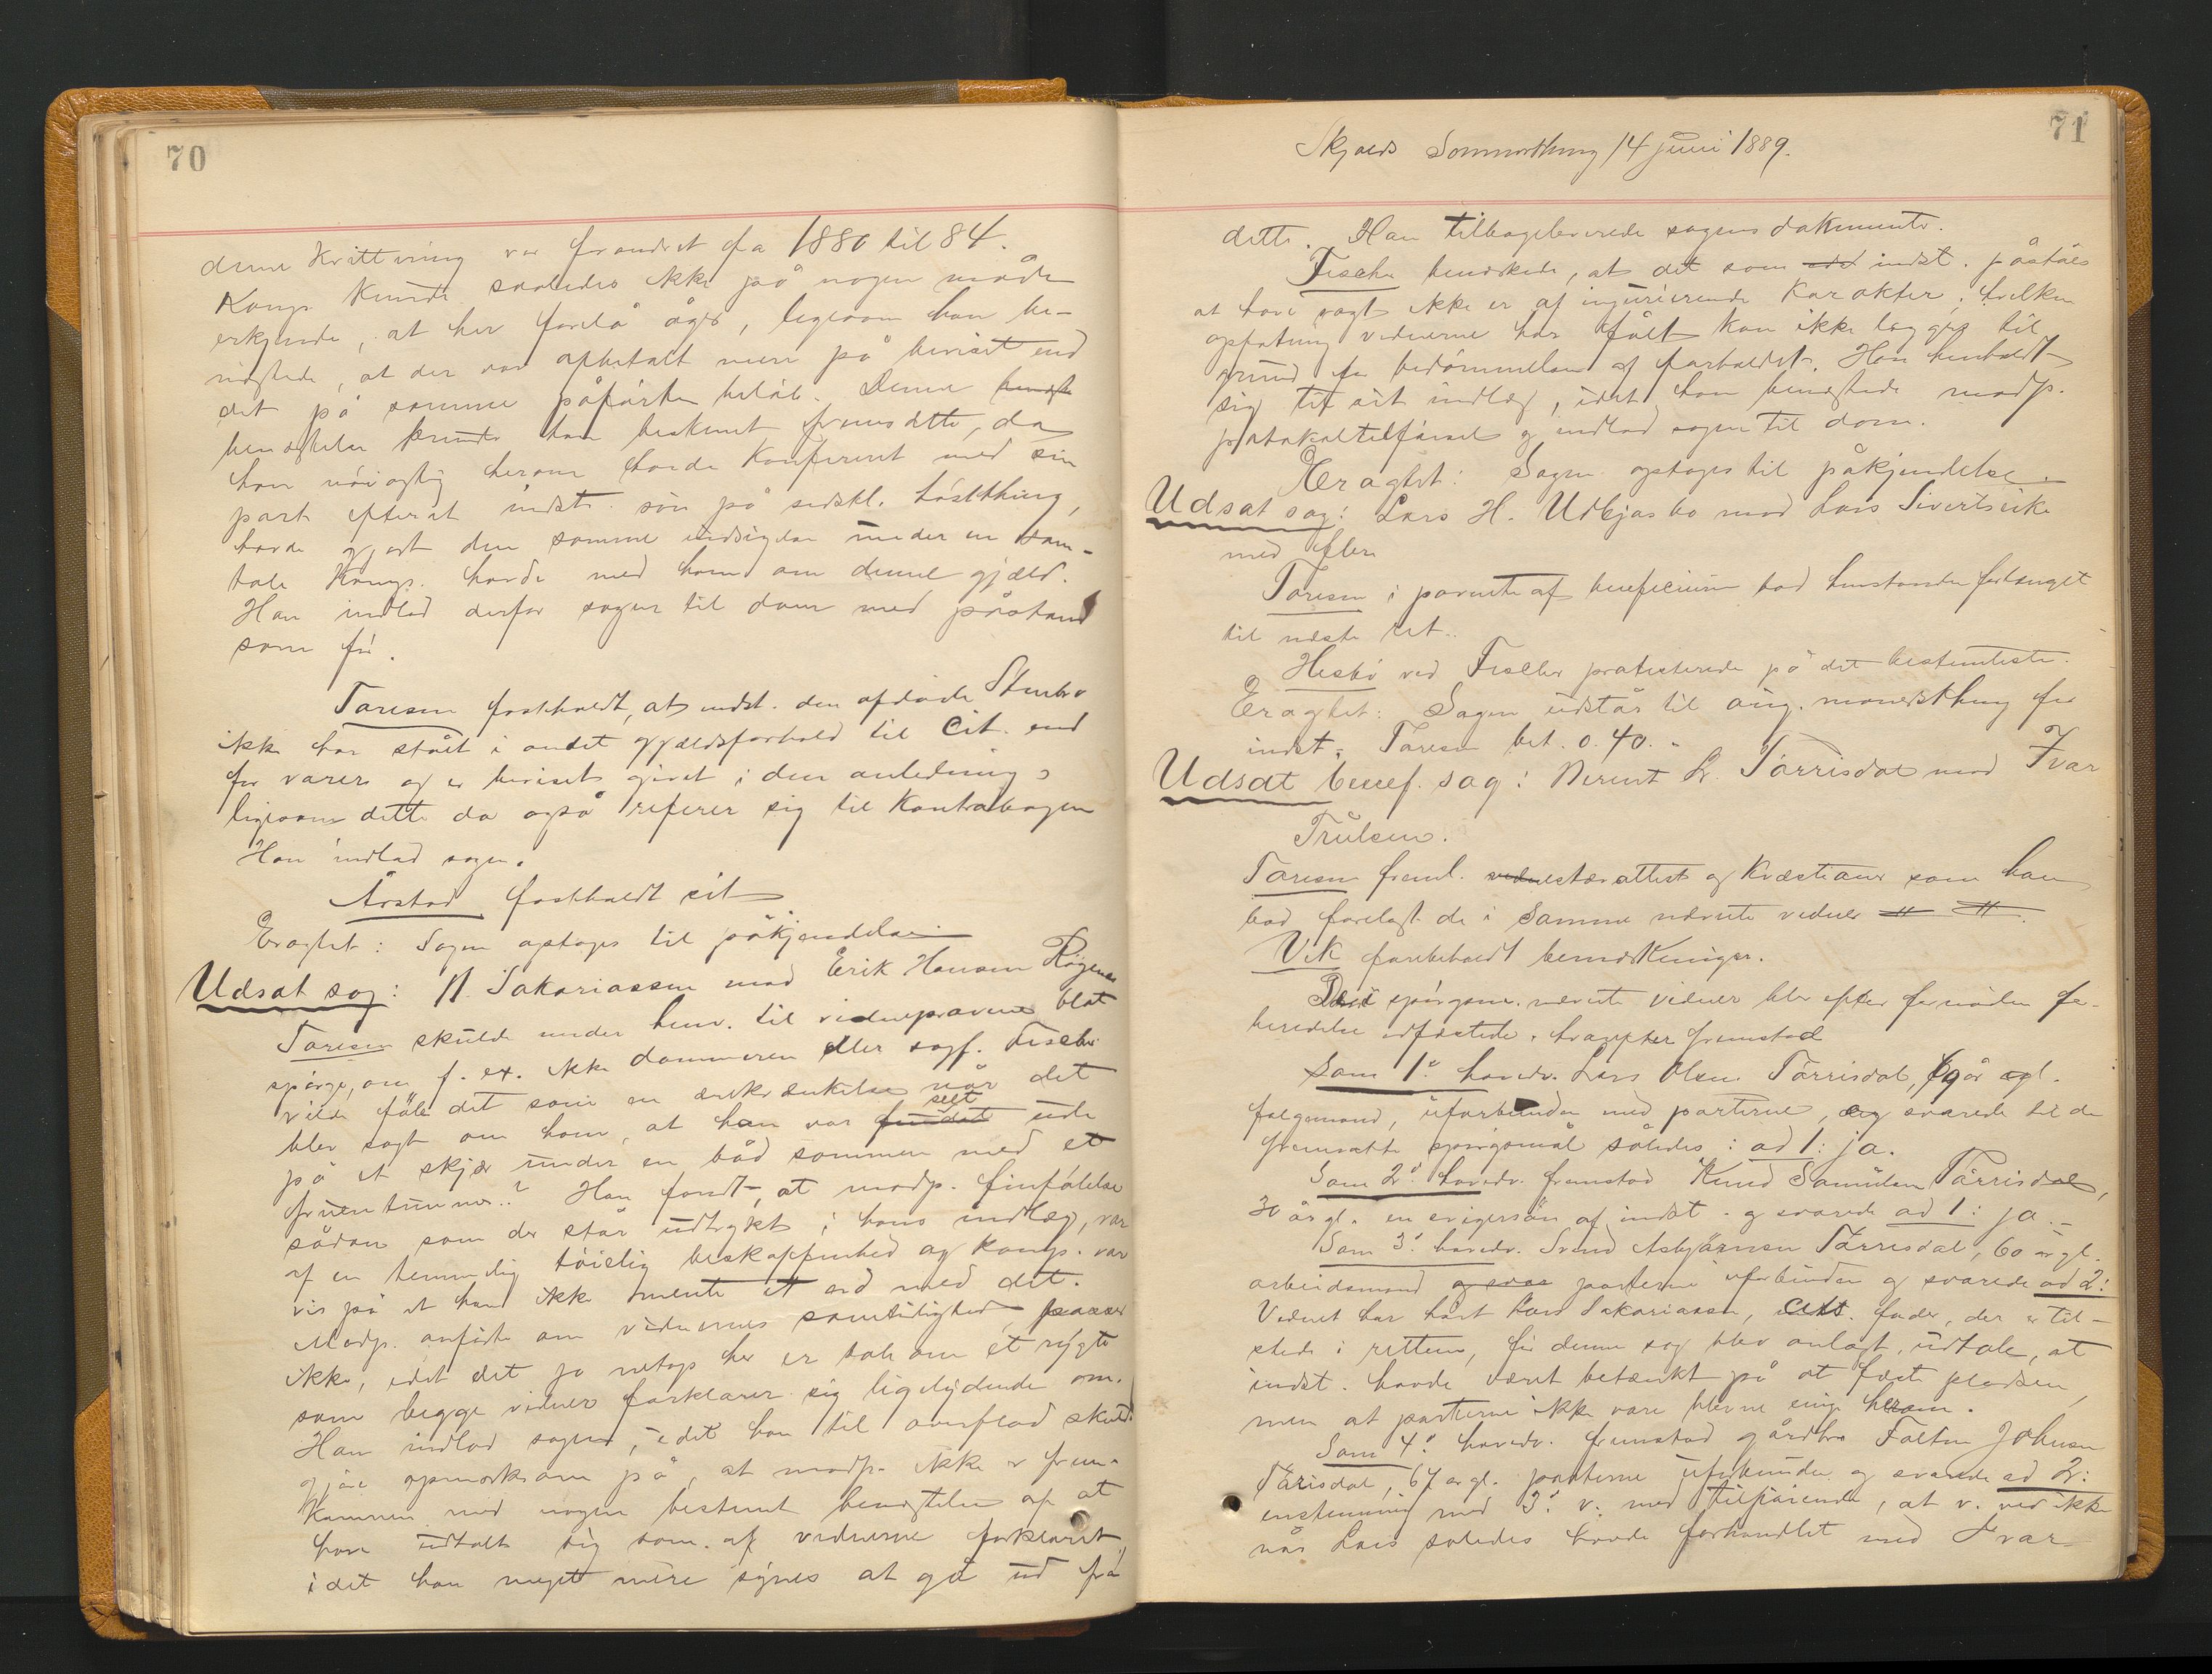 70
denne Krittning var forandret fra 1880 til 84.
Komp. kunde saaledes ikke på nogen måde
erkjende, at her forelå åger, ligesom han be-
nægtede, at der var afbetalt mere på beviset end
det på samme påførte beløb. Denne
benægtelse kunde han bestemt fremsætte, da
han nøiagtig herom havde konfereret med sin
part efter at indst. søn på sidstl. høstthing,
havde gjort den samme indsigelse under en sam-
tale Komp. havde med ham om denne gjæld.
Han indlod derfor sagen til dom med påstand
som før.
Taresen fastholdt, at indst. den afdøde Stenbro
ikke har stået i andet gjældsforhold til Cit. end
for varer og er beviset givet i den anledning,
ligesom dette da også referer sig til Kontrabogen
Han indlod sagen.
Årstad fastholdt sit
Eragtet: Sagen optages til påkjendelse
Udsat sag: N. Sakariassen mod Erik Hansen
Taresen skulde under henv. til vidneprovene blot
spørge, om f. ex. ikke dommeren eller sagf. Fischer
vilde føle det som en ærekrænkelse når det
blev sagt om ham, at han var fundet seet ude
på et skjær under en båd sammen med et
fruentimmer? Han fandt, at modp. finfølelse
sådan som der står udtrykt i hans indlæg, var
af en temmelig tøielig beskaffenhed og Komp. var
vis på at han ikke mente et ord med det.
Modp. anførte om vidnernes samtidighed passer
ikke, idet det jo netop her er tale om et rygte
som begge vidner forklarer sig ligelydende om.
Han indlod sagen, idet han til overflod skulde
gjøre opmærksom på, at modp. ikke er frem-
kommen med nogen bestemt benægtelse af at
have udtalt sig som af vidnerne forklaret,
idet han meget mere synes at gå ud fra
71
Skjolds Sommerthing 14 juni 1889.
dette. Han tilbageleverede sagens dokumenter.
Fischer bemærkede, at det som indst. påståes
at have sagt ikke er af injurierende Karakter; hvilken
opfatning vidnerne har fået kan ikke lægges til
grund for bedømmelsen af forholdet. Han henholdt
sig til sit indlæg, idet han benægtede modp.
protokoltilførsel og indlod sagen til dom.
Eragtet: Sagen optages til påkjendelse.
Udsat sag: Lars H. Utbjoabo mod Lars Sivertsvik
med flere
Taresen i påvente af beneficium bad henstanden forlænget
til næste ret.
Heskø ved Fischer protesterede på det bestemteste.
Eragtet: Sagen udstår til aug. månedsthing for
indst. Taresen bet. 0.40.
Udsat benef. sag: Berent L. Tørrisdal mod Ivar
Trulsen.
Taresen freml. vidnestævattest og Kvæstioner som han
bad forelagt de i samme nævnte vidner
Vik forebeholdt bemærkninger.
De i spørgsm. nævnte vidner blev efter formåden fo-
beredelse edfæstede, hvorefter fremstod
Som 1ste hovedv. Lars Olsen Tørrisdal, 69 år gl.
følgemand, uforbunden med parterne, og svarede til de
fremsatte spørgsmål således: ad 1: ja.
Som 2det hovedv. fremstod Knud Samuelsen Tørrisdal,
30 år gl. en svigersøn af indst. og svarede ad 1: ja.
Som 3die hovedv. Svend Asbjørnsen Tørrisdal, 60 år gl.
arbeidsmand og svar parterne uforbunden og svarede ad 2:
Vidnet har hørt Lars Sakariassen, citt. fader, der er til-
stede i retten, før denne sag blev anlagt, udtale, at
indst. havde været betænkt på at fæste pladsen,
men at parterne ikke vare blevne enige herom.
Som 4de hovedv. fremstod gårdbr. Tolten Johnsen
Tørisdal, 67 år gl. parterne uforbunden og svarede ad 2:
enstemmig med 3die v. med tilføiende, at v. ved ikke
når Lars saledes havde forhandlet med Ivar